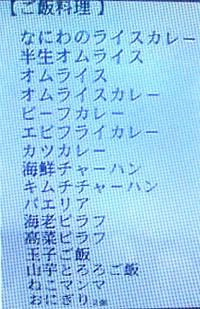 【ご飯料理】
なにわのライスカレー
半生オムライス
オムライス
オムライスカレー
ビーフカレー
エビフライカレー
カツカレー
海鮮チャーハン
キムチチャーハン
パエリア
海老ピラフ
高菜ピラフ
玉子ご飯
山芋とろろご飯
ねこマンマ
おにぎり2個